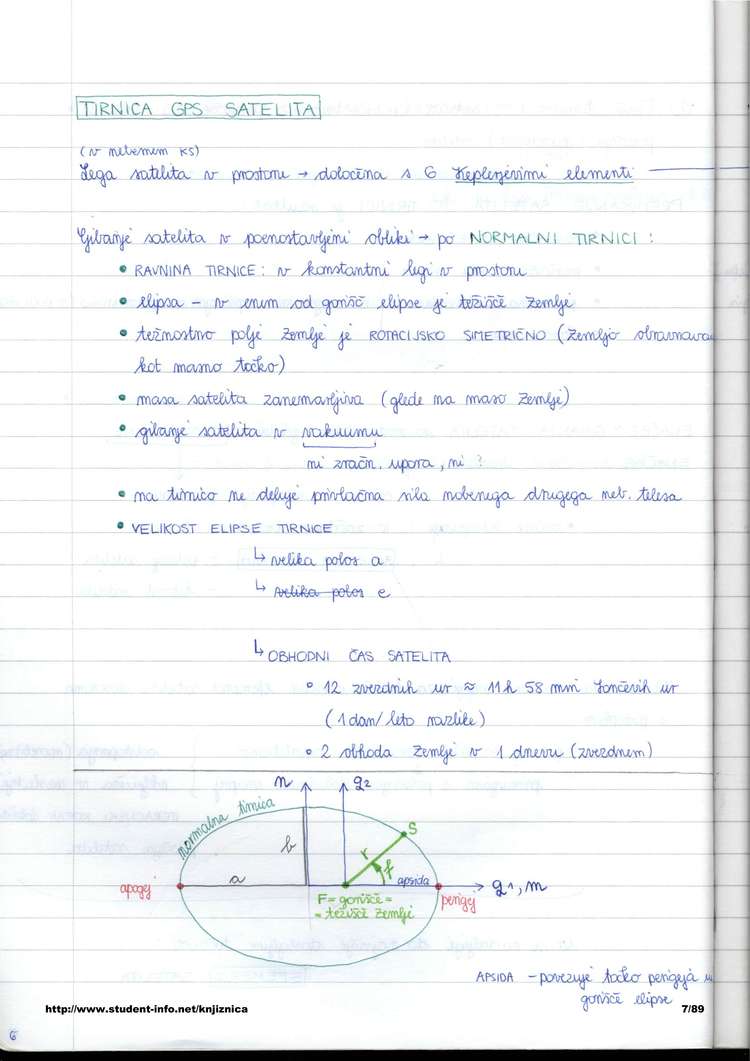 TIRNICA GPS SATELITA
(v nebesnem KS)
Lega satelita v prostoru → določena s 6 Keplerjevimi elementi
Gibanje satelita v poenostavljeni obliki → po NORMALNI TIRNICI :
• RAVNINA TIRNICE : v konstantni legi v prostoru
• elipsa - v enim od gorišč elipse je težišče Zemlje
• težnostno polje Zemlje je ROTACIJSKO SIMETRIČNO (Zemljo obravnava
kot masno točko)
• masa satelita zanemarljiva (glede na maso Zemlje)
• gibanje satelita v vakuumu
ni zračn. upora, ni ?
• na tirnico ne deluje privlačna sila nobenega drugega neb. telesa
• VELIKOST ELIPSE TIRNICE
↳ velika polos a
↳ velika polos e
↳ OBHODNI ČAS SATELITA
° 12 zvezdnih ur ≈ 11h 58 min Sončevih ur
(1 dan/leto razlike)
° 2 obhoda Zemlje v 1 dnevu (zvezdnem)
n q2
normalna tirnica
S
b r f
a apsida q1, m
apogej F = gorišče = perigej
= težišče Zemlje
APSIDA - povezuje točko perigeja in
gorišče elipse
http://www.student-info.net/knjiznica 7/89
6